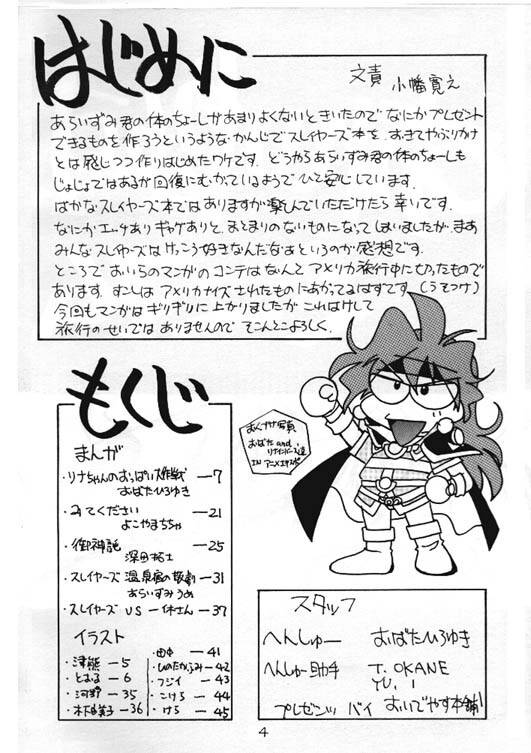 はじめに
文責 小幡寛之
あらいずみ君の体のちょーしがあまりよくないときいたので なにかプレゼント
できるものを作ろうというような かんじでスレイヤーズ本を、おきてやぶりかけ
とは感じつつ作りはじめたワケです。どうやらあらいずみ君の体のちょーしも
じょじょではあるが回復にむかっているようで ひと安心しています。
ばかなスレイヤーズ本ではありますが楽しんでいただけたら幸いです。
なにかエッチあり ギャグありと、まとまりのないものになってしまいましたが、まあ
みんなスレイヤーズはけっこう好きなんだなあというのが感想です。
ところで おいらのマンガのコンテはなんとアメリカ旅行中に切ったもので
あります。すこしはアメリカナイズされたものにあがってるはずです。(うそつけ)
今回もマンガはギリギリに上がりましたが これはけして
旅行のせいではありませんので そこんとこよろしく。
もくじ
まんが
・リナちゃんのおっぱい大作戦 —7
おばたひろゆき
・みてください —21
よこやまちちゃ
・御神説 —25
深田拓士
・スレイヤーズ 温泉宿の惨劇 —31
あらいずみうめ
・スレイヤーズ VS 一休さん —37
イラスト
・津熊 —5
・とおる —6
・河野 —35
・木下 —36
・田中 —41
・ひのたかふみ —42
・フジイ —43
・こけら —44
・けら —45
おくづけ写真
おばた and
リナインバース達
IN アニメエキスポ
スタッフ
へんしゅー おばたひろゆき
へんしゅー助手 T. OKANE
YU.
プレゼンツ バイ おいでやす本舗
4